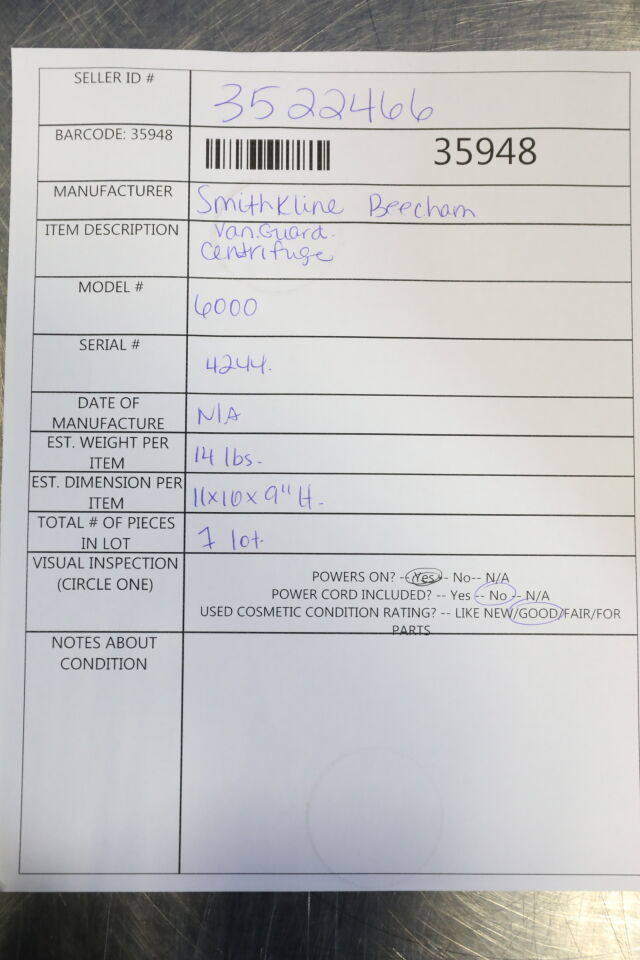 SELLER ID #
3522466
BARCODE: 35948
35948
MANUFACTURER
SmithKline Beecham
ITEM DESCRIPTION
Van.Guard.
Centrifuge
MODEL #
6000
SERIAL #
4244.
DATE OF
MANUFACTURE
N/A
EST. WEIGHT PER
ITEM
14 lbs.
EST. DIMENSION PER
ITEM
11x10x9" H.
TOTAL # OF PIECES
IN LOT
1 lot.
VISUAL INSPECTION
(CIRCLE ONE)
POWERS ON? --Yes-- No-- N/A
POWER CORD INCLUDED? -- Yes -- No -- N/A
USED COSMETIC CONDITION RATING? -- LIKE NEW/GOOD/FAIR/FOR
PARTS
NOTES ABOUT
CONDITION